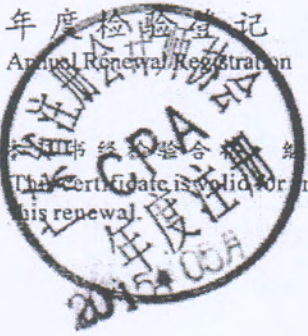 年度检验登记
Annual Renewal Registration
本证书经检验合格
This certificate is valid for
this renewal.
注册会计师协会
CPA
年度注册
05月